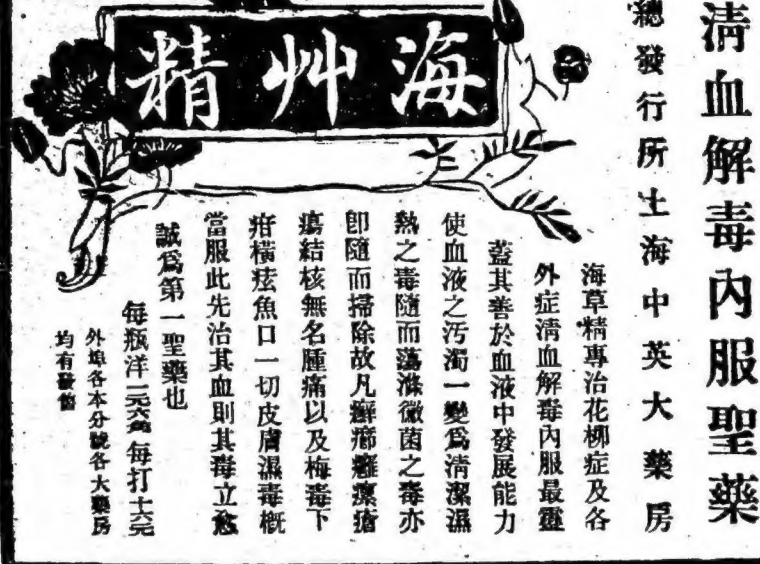 清血解毒內服聖藥
總發行所上海中英大藥房
海艸精
海草精專治花柳症及各
外症清血解毒內服最靈
蓋其善於血液中發展能力
使血液之汚濁一變爲清潔濕
熱之毒隨而蕩滌微菌之毒亦
卽隨而掃除故凡癬瘡癰瘰瘡
瘍結核無名腫痛以及梅毒下
疳橫痃魚口一切皮膚濕毒槪
當服此先治其血則其毒立愈
誠爲第一聖藥也
每瓶洋一元六角每打十六元
外埠各本分號各大藥房
均有發售